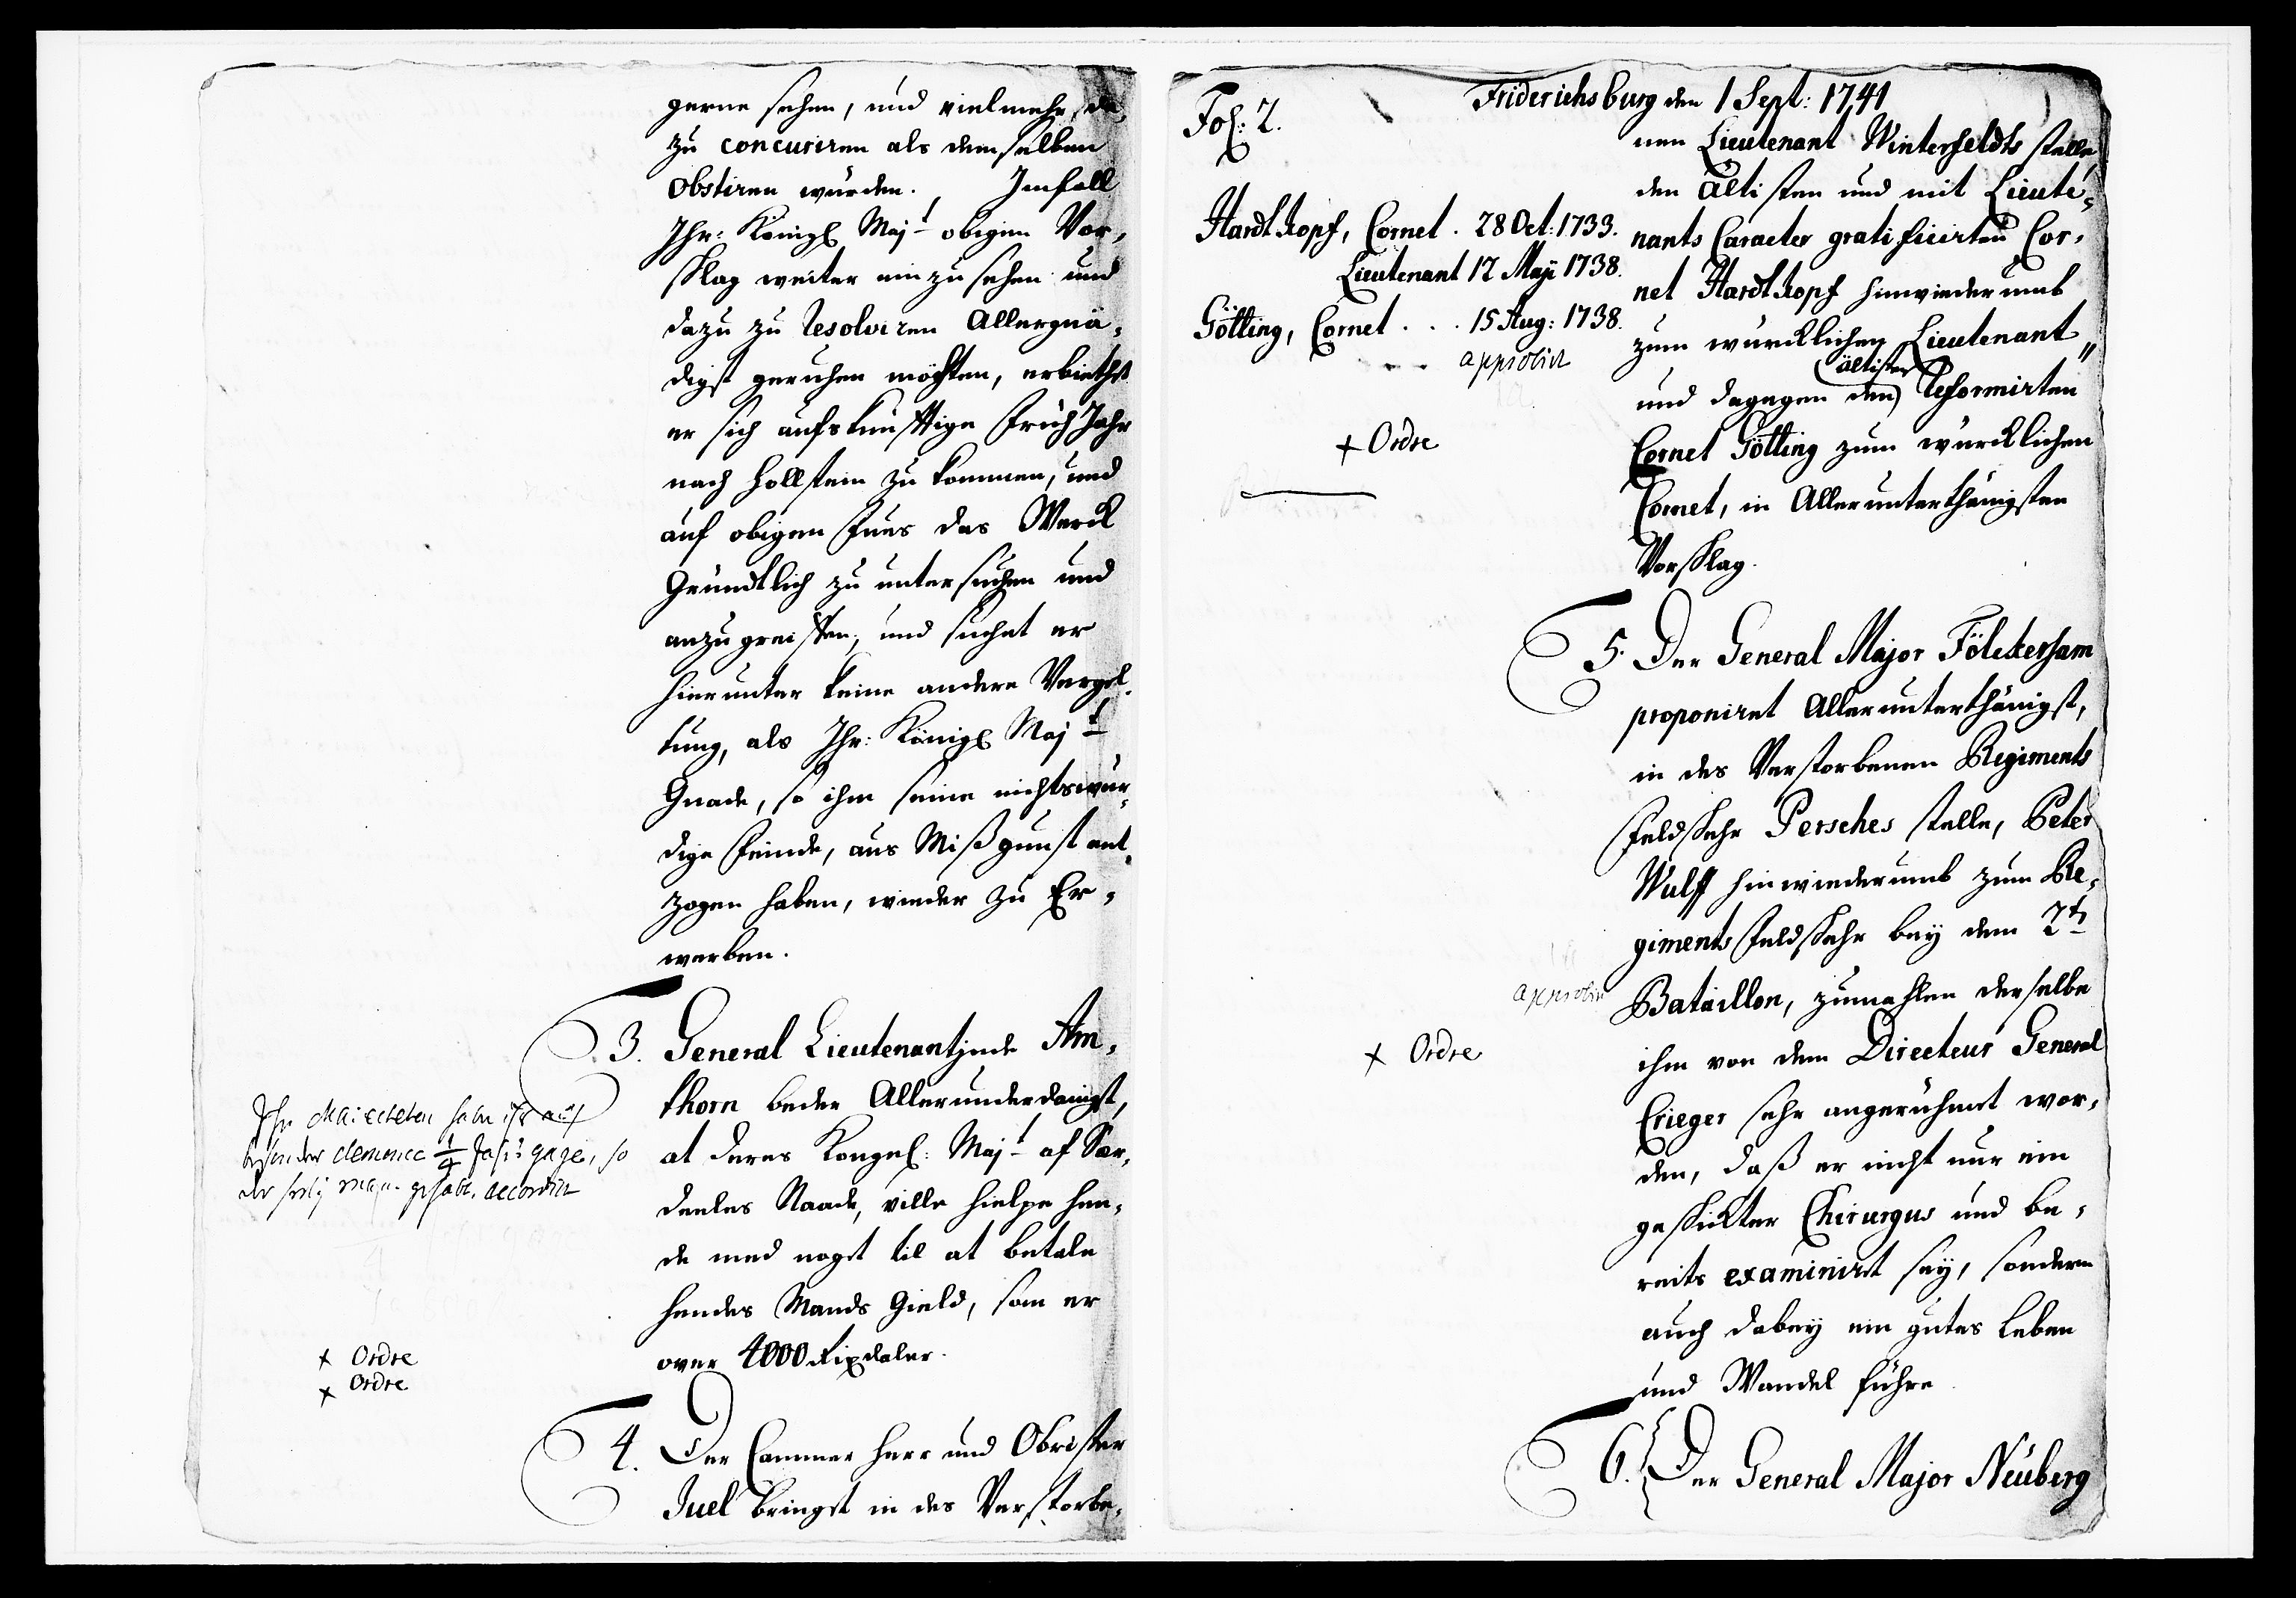 gerne sehen, und vielmehr da¬
zu concuriren als demselben
obstiren würden. Imfall
Ihr: Königl Majt obigen Vor¬
schlag weiter einzusehen und
dazu zu resolviren Allergnä¬
digst geruhen möchten, erbiethet
er sich aufs künfftige Früh Jahr
nach Hollstein zu kommen, und
auf obigen Fues das Werck
Gründtlich zu untersuchen und
anzugreiffen, und suchet er
hierunter keine andere Vergel¬
tung, als Ihr: Königl Majt
Gnade, so ihm seine nichtswür¬
dige Feinde, aus Mißgunst ent¬
zogen haben, wieder zu Er¬
werben.
3. General Lieutenantjnde Am¬
thorn beder Allerunderdanigst,
at deres Kongel: Majt af Sær¬
deeles Naade, ville hielpe hen¬
de med noget til at betale
hendes Mands Gield, som er
over 4000 Rixdaler.
Ihr Maiesteten haben ihr auß
besonder clemence ¼ Jahrs gage, so
der seelig man gehabt, accordirt
+ Ordre
+ Ordre
4. Der Cammer Herr und Obrister
Juel bringet in des Verstorbe¬
Fol: 2.
Friderichsburg den 1 Sept: 1741
nen Lieutenant Winterfeldts stelle,
den Ältisten und mit Lieute¬
nants Caracter gratificirten Cor¬
net Hardtkopf hinwiederumb
zum würcklichen Lieutenant
und dagegen den ältisten Reformirten
Cornet Götting zum würcklichen
Cornet, in Allerunterthänigsten
Vorschlag.
Hardtkopf, Cornet. 28 Oct: 1733.
Lieutenant 12 Maji 1738.
Götting, Cornet . . . 15 Aug: 1738.
approbirt
+ Ordre
5. Der General Major Fölckersam
proponiret Allerunterthänigst,
in des Verstorbenen Regiments
Feldscher Persches stelle, Peter
Wulff hinwiederumb zum Re¬
giments Feldscher bey dem 2t
Bataillon, zumahlen derselbe
ihm von dem Directeur General
Crieger sehr angerühmt wor¬
den, daß er nicht nur ein
geschickter Chirurgus und be¬
reits examiniret sey, sondern
auch dabey ein gutes Leben
und Wandel führe
approbirt
+ Ordre
6. Der General Major Neuberg